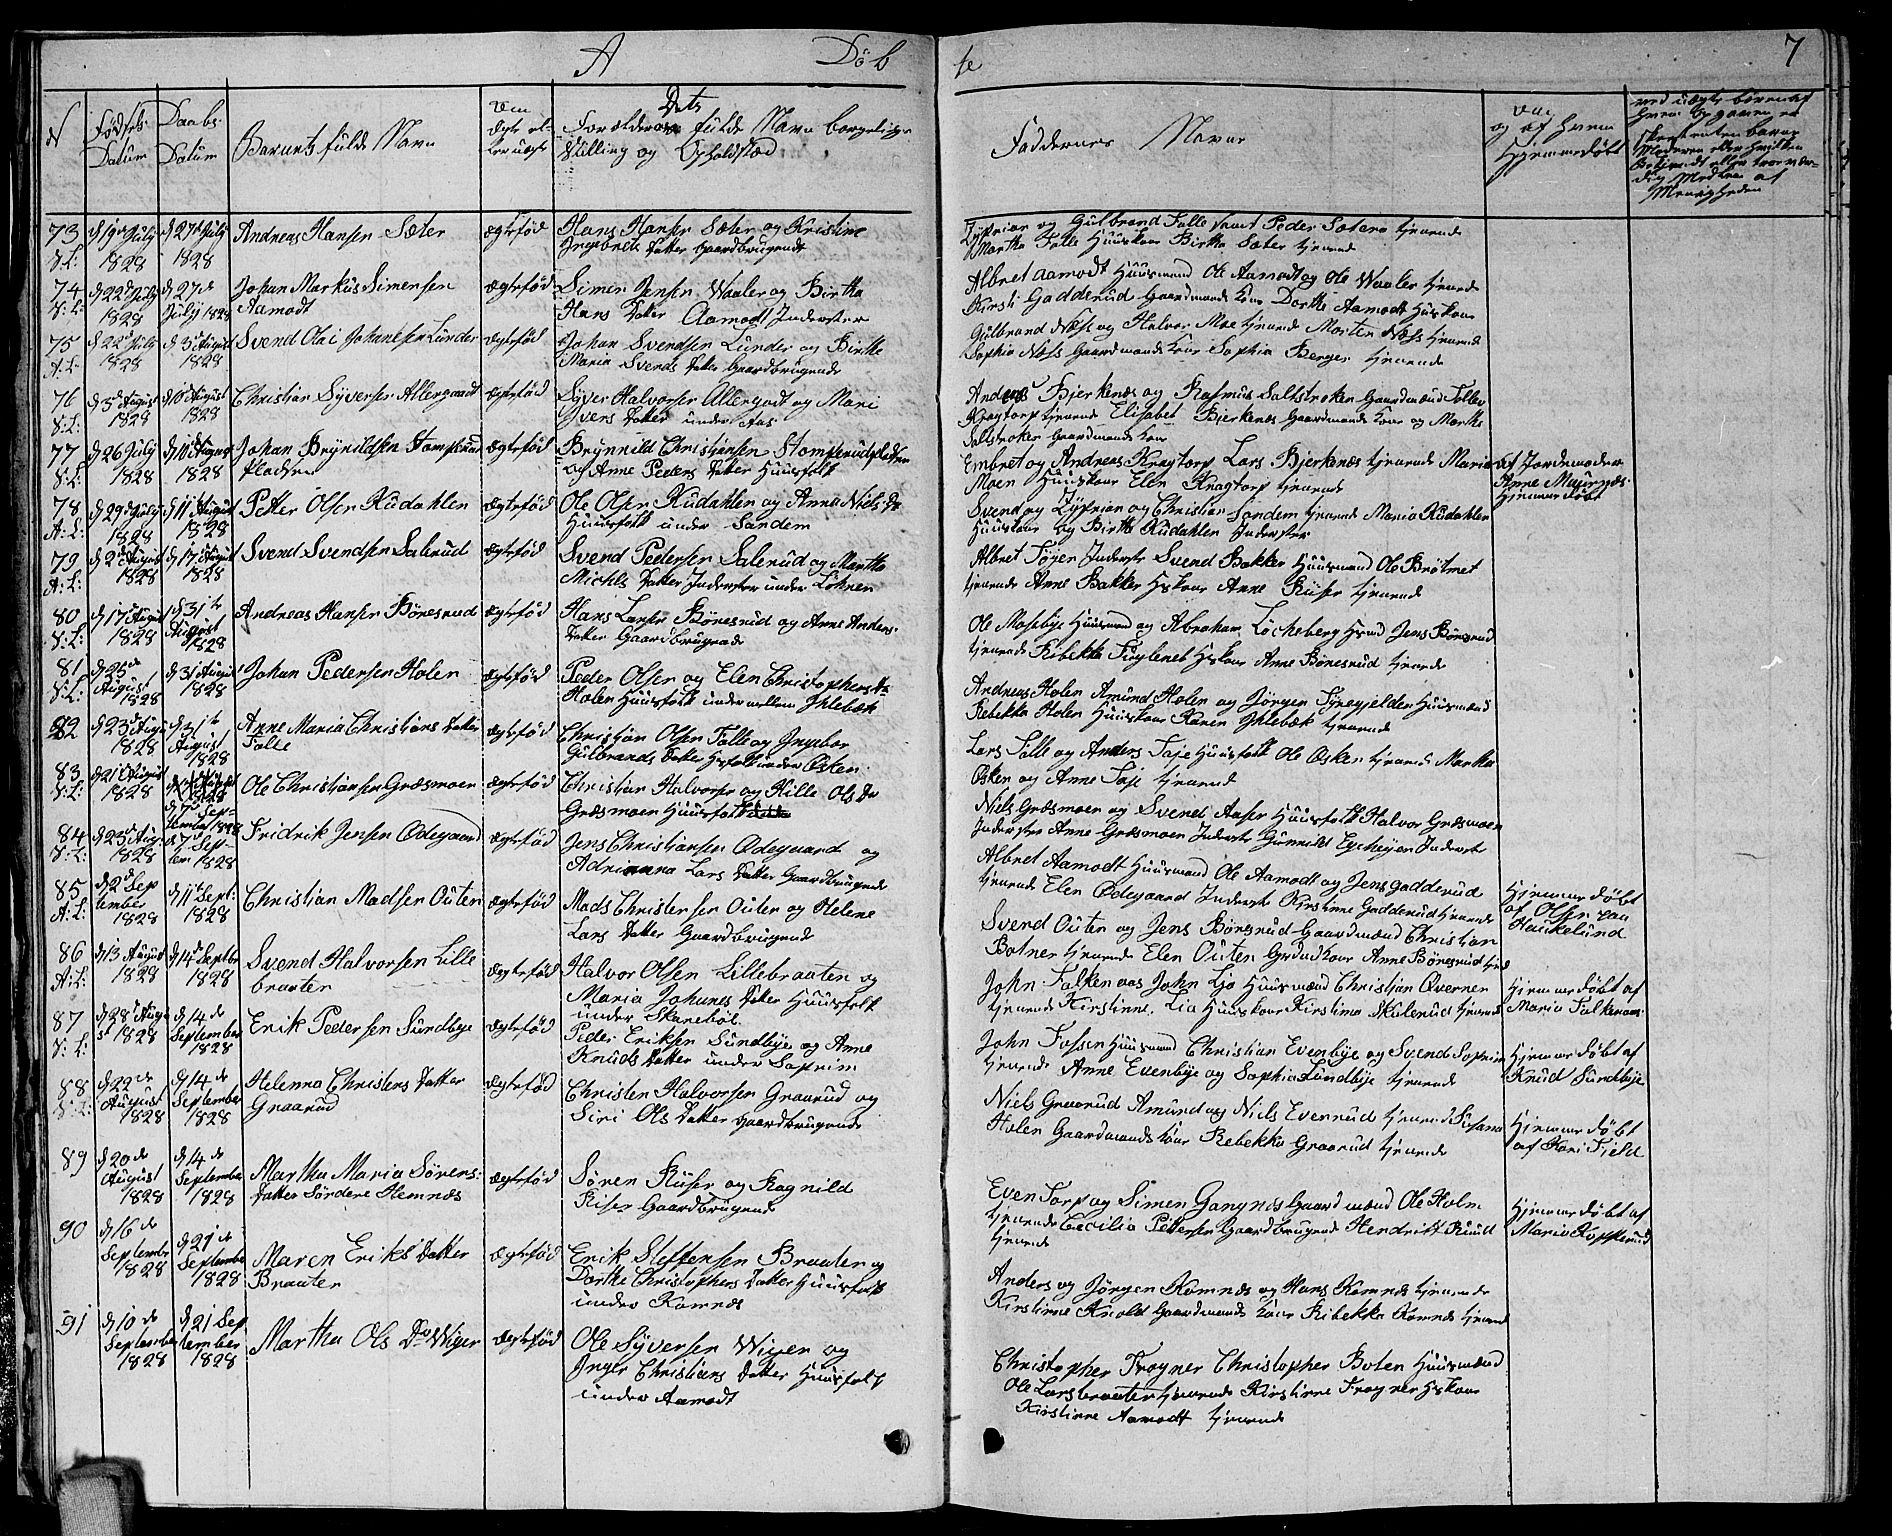 A Döb
te 7
N
Födsels Datum
Daabs Datum
Barnets fulde Navn
om Ægte el- ler uægte
Dets
Forældrenes fulde Navn borgerlige
Stilling og Opholdsted
Faddernes Navne
og af Hvem
Hjemmedöbt
73 d 19de July 1828 d 27de July 1828 Andreas Hansen Sæter Ægtefød Hans Hansen Sæter og Kristine
Ingebrets Datter Gaardbrugende
Zÿprian og Gulbrand Falle samt Peder Sætern tjenende
Martha Falle Huuskone Birthe Sæter tjenende
74 d 22de July 1828 d 27de July 1828 Johan Markus Simensen
Aamodt Ægtefød Simen Jensen Waaler og Birthe
Hans Datter Aamodt Inderster
Albret Aamodt Huusmand Ole Aamodt og Ole Waaler tjenende
Kirsti Gadderud Gaardmands Kone Dorthe Aamodt Huskone
75 d 22de July 1828 d 3de August 1828 Svend Olai Johansen Lunder Ægtefød Johan Svendsen Lunder og Birthe
Maria Svends Datter Gaardbrugende
Gulbrand Næss og Halvor Moe tjenende Morten Næss tjenende
Sophia Næss Gaardmands Kone Sophia Berger tjenende
76 d 3de August 1828 d 10de August 1828 Christian Syversen Allergaadt Ægtefød Syver Halvorsen Allergodt og Mari
Syvers Datter under Aas
Anders Bjerkenæs og Rasmus Saltstroken Gaardmænd Tollev
Kragtorp tjenende Elisabet Bjerkenæs Gaardmands Kone og Marthe
Saltstroken Gaardmands Kone
77 d 26 July 1828 d 10de August 1828 Johan Brynildsen Stomperud
Pladsen Ægtefød Brynnild Christiansen Stomperudpladsen
og Anne Peders Datter Huusfolk
Embret og Andreas Kragtorp Lars Bjerkenæs tjenende Maria
Moen Huuskone Elen Kragtorp tjenende
af Jordemoder
Anne
Hjemme döbt
78 d 29de July 1828 d 11te August 1828 Petter Olsen Kudahlen Ægtefød Ole Olsen Kudahlen og Anna Niels Dr
Huusfolk under Sandem
Svend og Zyprian og Christian Sandem tjenende Maria Kudahlen
Huuskone og Birthe Kudahlen Inderster
79 d 2de August 1828 d 17de August 1828 Svend Svendsen Salerud Ægtefød Svend Pedersen Salerud og Marthe
Michels Datter Inderster under Löknen
Albret Töyen Inderste Svend Bakker Huusmand Ole Brötmet
tjenende Anne Bakker Hskone Anne Kuser tjenende
80 d 17de August 1828 d 31te August 1828 Andreas Hansen Bönesrud Ægtefød Hans Larsen Bönesrud og Anne Anders-
Datter Gaardbrugende
Ole Mosebye Huusmand og Abraham Löcheberg Hsmd Jens Bönesrud
tjenende Ribekka Fuglenet Hskone Anne Bönesrud tjenende
81 d 25de August 1828 d 31 August 1828 Johan Pedersen Holen Ægtefød Peder Olsen og Elen Christophers Dr
Holen Huusfolk under mellem Ihlebæk
Andreas Holen Amund Holen og Jörgen Fyregjelden Huusmænd
Rebekka Holen Huuskone Karen Ihlebæk tjenende
82 d 23de August 1828 d 31te August 1828 Anne Maria Christians Datter
Falle Ægtefød Christian Olsen Falle og Ingebor
Gulbrands Datter Hsfolk under Östen
Lars Falle og Anders Taje Huusfolk Ole Osken tjenende Martha
Osken og Anne Taje tjenende
83 d 21de August 1828 d 7de Sep-
tember 1828 Ole Christiansen Græsmoen Ægtefød Christian Halvorsen og Kille Ols Dr
Græsmoen Huusfolk
Niels Græsmoen og Svend Aasen Huusfolk Halvor Græsmoen
Inderster Anne Græsmoen Inderste Gunnild Inderste
84 d 23de Aug: 1828 d 7de Sep- tem 1828 Fridrik Jensen Ödegaard Ægtefød Jens Christiansen Ödegaard og
Adrianna Lars Datter Gaardbrugende
Albret Aamodt Huusmand Ole Aamodt og Jens Gadderud
tjenende Elen Ödegaard Inderste Kirstinne Gadderud tjenende
85 d 2de Sep tember 1828 d 11te Sept: 1828 Christian Madsen Outen Ægtefød Mads Christensen Outen og Helene
Lars Datter Gaardbrugende
Svend Outen og Jens Bönesrud Gaardmænd Christian
Botner tjenende Elen Outen Grdmd Kone Anne Bönesrud tjend
Hjemme döbt
af Olsen paa
Haukelund
86 d 13 August 1828 d 14de Septbr 1828 Svend Halvorsen Lille
braaten Ægtefød Halvor Olsen Lillebraaten og
Maria Johanes Datter Huusfolk
under Skaneböl.
John Falkenaas John Lio Huusmænd Christian Ovennen
tjenende Kirstinne Lia Huuskone Kirstina Skolerud tjenend
Hjemme döbt af
Maria Falkenaas
87 d 28de Augu st 1828 d 14de September 1828 Erik Pedersen Sundbye Ægtefød Peder Eriksen Sundbye og Anne
Knuds Datter under Soprim
John Fossen Huusmand Christian Evenbye og Svend Soprim
tjenende Anne Evenbye og Sophia Sundbye tjenende
Hjemme döbt af
Knud Sundbye
88 d 29de August 1828 d 14de September 1828 Helenna Christens Datter
Graarud Ægtefød Christen Halvorsen Graarud og
Siri Ols Datter Gaardbrugende
Niels Graarud Amund og Niels Evenrud tjenende Susana
Holen Gaardmands Kone Rebekka Graarud tjenende
Hjemme döbt
af Kari Fjeld
89 d 20de August 1828 d 14de September 1828 Martha Maria Sörens-
Datter Söndere Hemnæs Ægtefød Sören Kuser og Ragnild
Riser Gaardbrugende
Even Torp og Simen Gangnæs Gaardmænd Ole Holm
tjenende Cecilia Pettersen Gaardbrugende Hendrikt Ruud
tjenende
Hjemme döbt af
Maria Kopperud
90 d 16de September 1828 d 21de September 1828 Maren Eriks Datter
Braaten Ægtefød Erik Steffensen Braaten og
Dorthe Christophers Datter Huusfolk
under Komnæs
Anders og Jörgen Komnæs og Hans Komnæs tjenende
Kirstinne Knold Gaardmands Kone Ribekka Komnæs tjenend
91 d 10de September 1828 d 21 Sep tember 1828 Martha Ols Dr Wiger Ægtefød Ole Syversen Wigen og
Inger Christians Datter Huusfolk
under Aamodt
Christopher Trogner Christopher Boten Huusmænd
Ole Larsbraaten tjenende Kirstinne Trogner Hskone
Kirstinne Aamodt tjenende